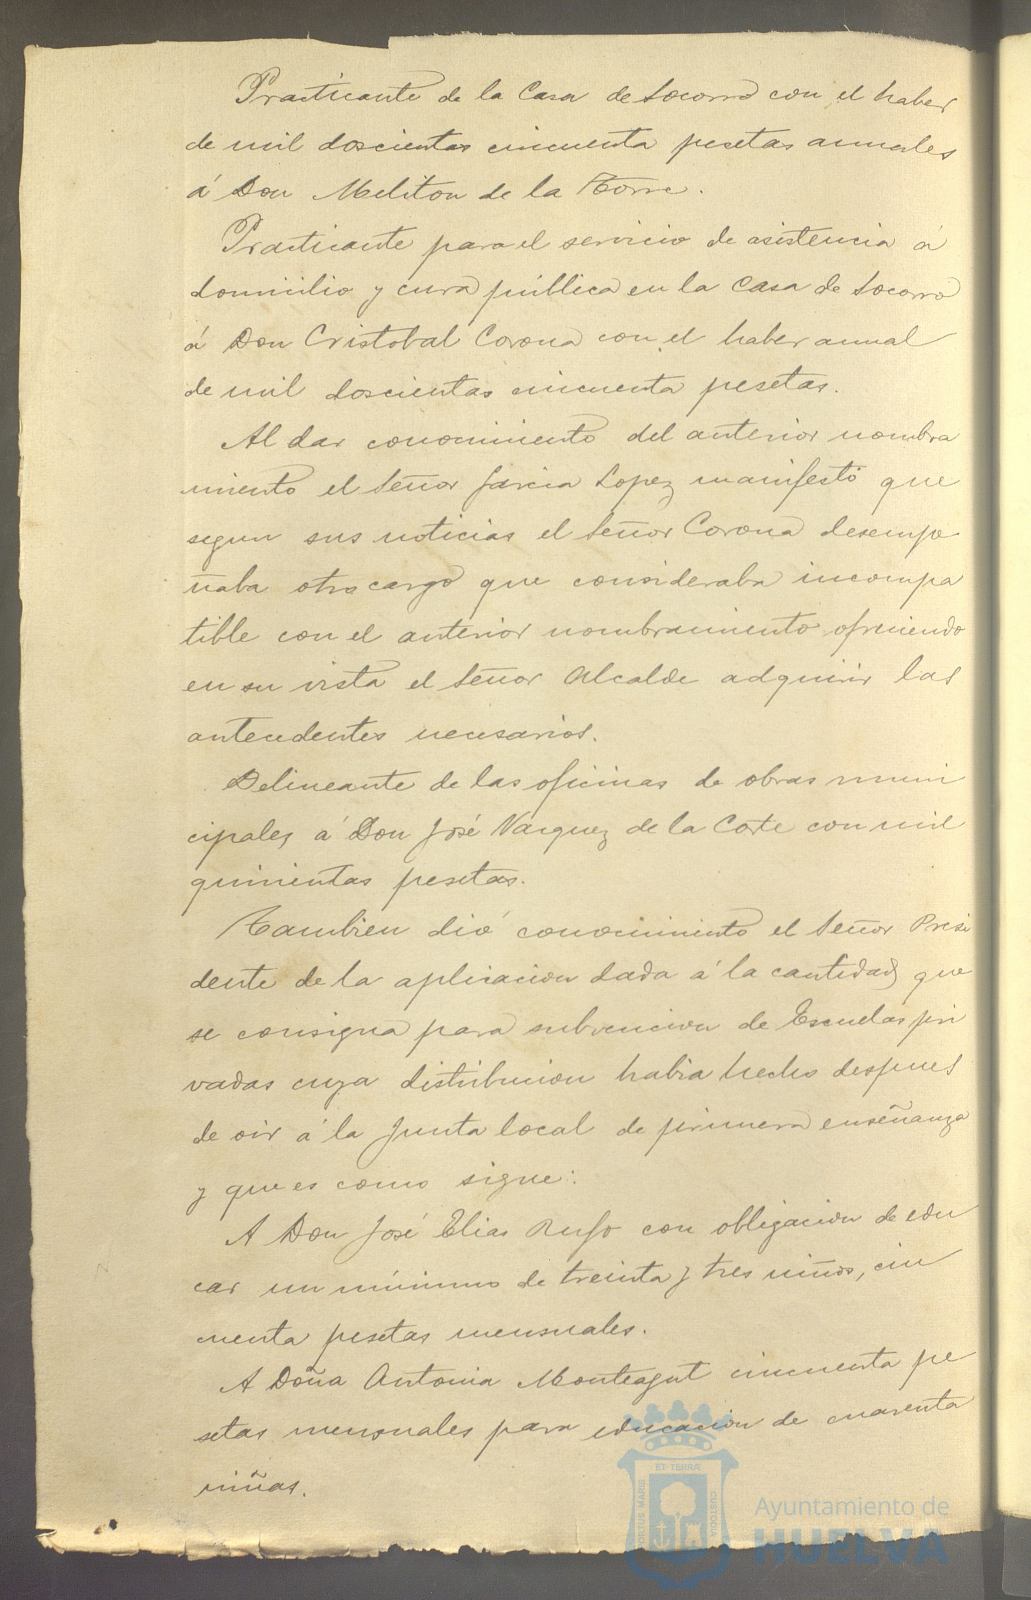 Practicante de la Casa de Socorro con el haber
de mil doscientas cincuenta pesetas anuales
á Don Meliton de la Torre.
Practicante para el servicio de asistencia á
domicilio y cura pública en la Casa de Socorro
á Don Cristobal Corona con el haber anual
de mil doscientas cincuenta pesetas.
Al dar conocimiento del anterior nombra
miento el Señor Garcia Lopez manifestó que
segun sus noticias el Señor Corona desempe
ñaba otro cargo que consideraba incompa
tible con el anterior nombramiento ofreciendo
en su vista el Señor Alcalde adquirir las
antecedentes necesarios.
Delineante de las oficinas de obras muni
cipales á Don José Vazquez de la Corte con mil
quinientas pesetas.
Tambien dió conocimiento el Señor Presi
dente de la aplicacion dada á la cantidad que
se consigna para subvencion de Escuelas pri
vadas cuya distribucion habia hecho despues
de oir á la Junta local de primera enseñanza
y que es como sigue:
A Don José Elias Rufo con obligacion de edu
car un mínimo de treinta y tres niños, cin
cuenta pesetas mensuales.
A Doña Antonia Monteagut cincuenta pe
setas mensuales para educacion de cuarenta
niñas.
PORTUS MARIS
ET TERRÆ
CUSTODIA
Ayuntamiento de
HUELVA